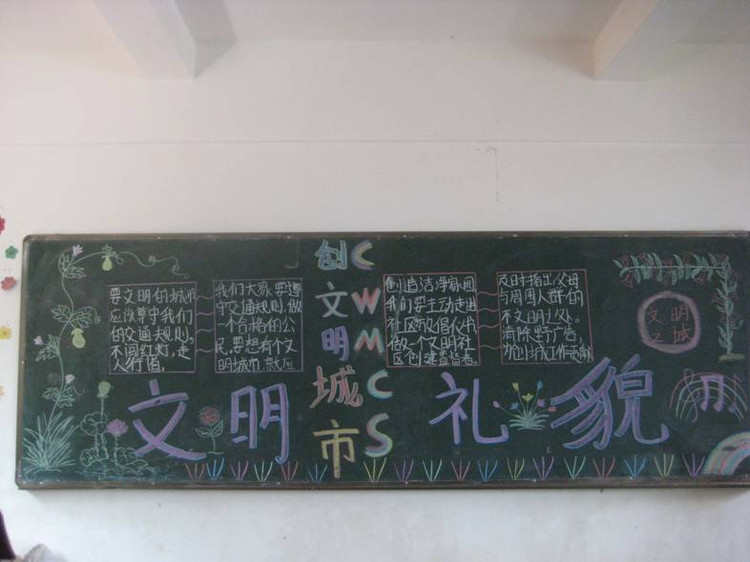 要文明的城市
应该尊守我们
的交通规则,
不闯红灯,走
人行道.
我们大家要遵
守交通规则,做
一个合格的公
民,要想有个文
明城市,就应
创
文
明
城
市
C
W
M
C
S
创造洁净家园
我们要主动走进
社区发倡仪书
做一个文明社
区创建监督者.
及时指出父母
与周围人群的
不文明之处.
清除野广告
为创城工作贡献
文明
之城
文明
礼貌